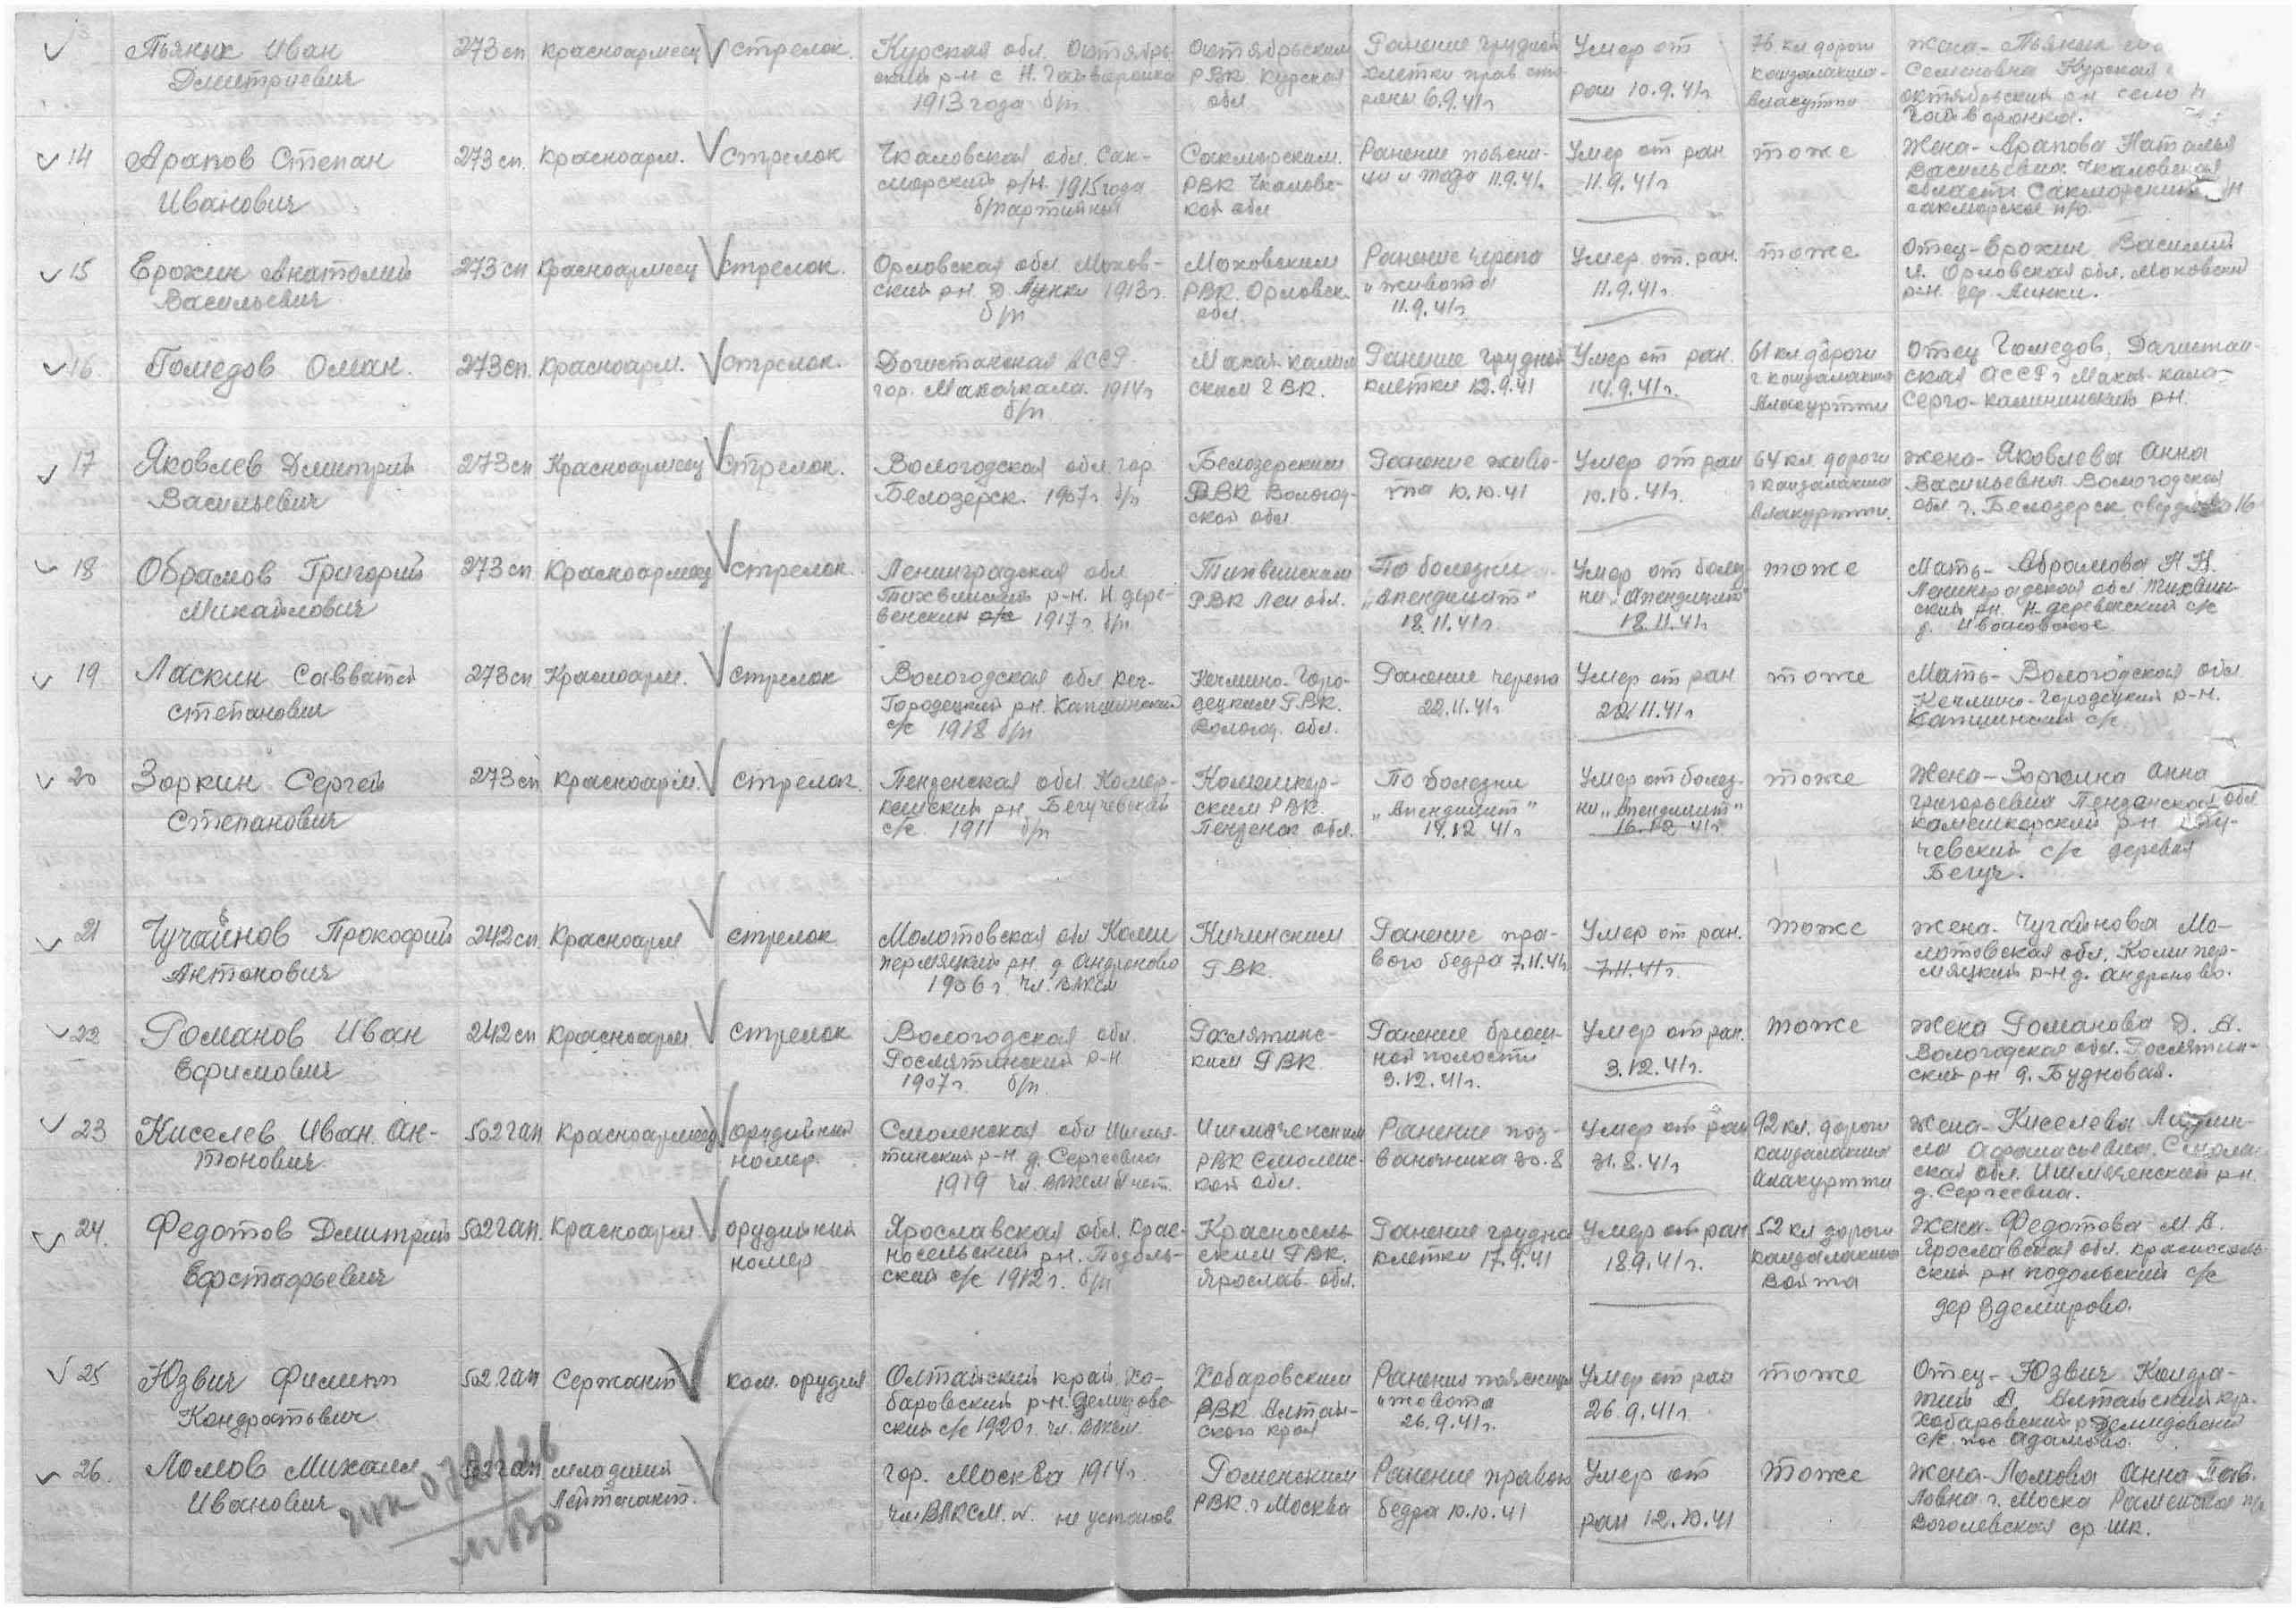 Пьяных Иван Дмитриевич 273 сп красноармеец стрелок. Курская обл. Октябрь-
ский р-н с Н. Гайворонка
1913 года б/п
Октябрьским
РВК Курская
обл
Ранение грудной
клетки прав сто-
роны 6.9.41г
Умер от
ран 10.9.41г
76 кл дороги
кандалакша-
алакуртти
жена - Пьяных
Семеновна Курская
октябрьский рн село Н
Гайворонка.
14 Арапов Степан
Иванович
273 сп. Красноарм. стрелок
Чкаловская обл. Сак-
марский р/н. 1915 года
б/партийный
Сакмарским.
РВК Чкаловс-
кой обл
Ранение поясни-
цы и таза 11.9.41г.
Умер от ран
11.9.41г
тоже
Жена - Арапова Наталья
Васильевна. Чкаловская
области Сакмарский
сакморское п/о.
15 Ерохин Анатолий
Васильевич
273 сп Красноармеец стрелок.
Орловская обл. Мохов-
ский рн. д. Лунки 1913г.
б/п
Моховским
РВК. Орловск.
обл.
Ранение черепа
и живота
11.9.41г
Умер. от. ран.
11.9.41г
тоже
Отец - Ерохин Василий
И. Орловская обл. Моховский
р-н. дер. Линки.
16. Гомедов Оман.
273 сп. Красноарм. стрелок.
Догистанская АССР
гор. Махачкала. 1914г
б/п
Махач-калин
ским ГВК.
Ранение грудной
клетки 12.9.41
Умер от ран.
14.9.41г.
61 кл дороги
г кандалакша
Алакуртти
Отец Гомедов, Дагистан-
ская АССР г Махач-кала-
Серго-калининский рн.
17 Яковлев Дмитрий
Васильевич
273 сп Красноармеец стрелок.
Вологодская обл. гор
Белозерск. 1907г б/п
Белозерским
РВК Вологод-
ской обл
Ранение живо-
та 10.10.41
Умер от ран
10.10.41г.
64 кл дороги
г кандалакша
Алакуртти.
жена - Яковлева Анна
Васильевна Вологодская
обл г. Белозерск 16
18 Обрамов Григорий
Михайлович
273 сп Красноармеец стрелок.
Ленинградская обл
Тихвинский р-н. Н. дере-
венский с/с 1917г. б/п
Тихвинским
РВК Лен обл.
По болезни
„Апендицит"
18.11.41г.
Умер от болез-
ни „Апендицит"
18.11.41г.
тоже
Мать - Абрамова А Н.
Ленинградская обл Тихвин-
ский рн. Н-деревенский с/с
д. Ивановское
19 Ласкин Савватей
Степанович
273 сп Красноарм. стрелок
Вологодская обл Кеч-
Городецкий рн. Капшинский
с/с 1918 б/п
Кечмино-Горо-
децким РВК.
Вологод. обл.
Ранение черепа
22.11.41г
Умер от ран
22.11.41г
тоже
Мать - Вологодская обл
Кечмино-Городецкий р-н.
Капшинский с/с
20 Зоркин Сергей
Степанович
273 сп Красноарм. стрелок.
Пенденская обл Комер-
кешский рн. Бегучевский
с/с. 1911 б/п
Комешкер-
ским РВК.
Пенденск обл.
По болезни
„Апендицит"
14.12 41г
Умер от болез-
ни „Апендицит"
16.12 41г.
тоже
Жена - Зоркина Анна
григорьевна Пенденская обл
камешкорский р-н
чевский с/с деревня
Бегуч.
21 Чучайнов Прокофий
Антонович
242 сп. Красноарм стрелок
Молотовская обл Коми
пермяцкий рн. д Андроново
1906г. чл. ВЛКСМ
Кичинским
РВК.
Ранение пра-
вого бедра 7.11.41г
Умер от ран.
7.11.41г.
тоже
жена. Чугайнова Мо-
лотовская обл. Коми пер-
мяцкий р-н д. Андроново.
22 Романов Иван
Ефимович
242 сп Красноарм. стрелок
Вологодская обл.
Рослятинский р-н
1907г. б/п.
Рослятинс-
ким РВК
Ранение брюш-
ной полости
3.12.41г.
Умер от ран.
3.12.41г.
тоже
жена Романова Д. А.
Вологодская обл. Рослятин-
ский рн д. Будновая.
23 Киселев Иван. Ан-
тонович
502 гап Красноармеец орудийный
номер.
Смоленская обл
р-н. д. Сергеевка
1919 чл. ВЛКСМ
РВК Смоленс-
кой обл.
Ранение поз-
ваночника 30.8
Умер от ран
31.8.41г
92 кл. дороги
кандалакша
Алакуртти
жена - Киселева
Афанасьевна.
ская обл. рн.
д. Сергеевка.
24. Федотов Дмитрий
Ефстафьевич
502 гап. Красноарм. орудийный
номер
Ярославская обл. Крас-
носельский рн. Подоль-
ский с/с 1912г. б/п
Красносель-
ским РВК.
Ярослав. обл.
Ранение грудно
клетки 17.9.41
Умер от ран
18.9.41г.
52 кл дороги
кандалакша
Войта
жена - Федотова М. А.
Ярославская обл. красносель-
ский рн подольский с/с
дер Здемирово.
25 Юзвич Филипп
Кондратьевич
502 гап Сержант ком. орудия
Олтайский край, Ха-
баровский р-н. Демидовс-
кий с/с 1920г. чл. ВЛКСМ.
Хабаровским
РВК Алтай-
ского края
Ранения поясницы
и живота
26.9.41г.
Умер от ран
26.9.41г.
тоже
Отец - Юзвич Кондра-
тий А Алтайский кр.
Хабаровский р Демидовский
с/с. пос Адамово.
26. Ломов Михаил
Иванович
502 гап младший
Лейтенант.
гор. Москва 1914г.
чл ВЛКСМ. не установ
Раменским
РВК. г Москва
Ранение правого
бедра 10.10.41
Умер от
ран 12.10.41
тоже
жена - Ломова Анна Пав-
ловна г. Моска Раменское
ср шк.